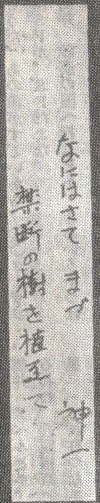 なにはさて まづ
禁断の樹を植ゑて
神一